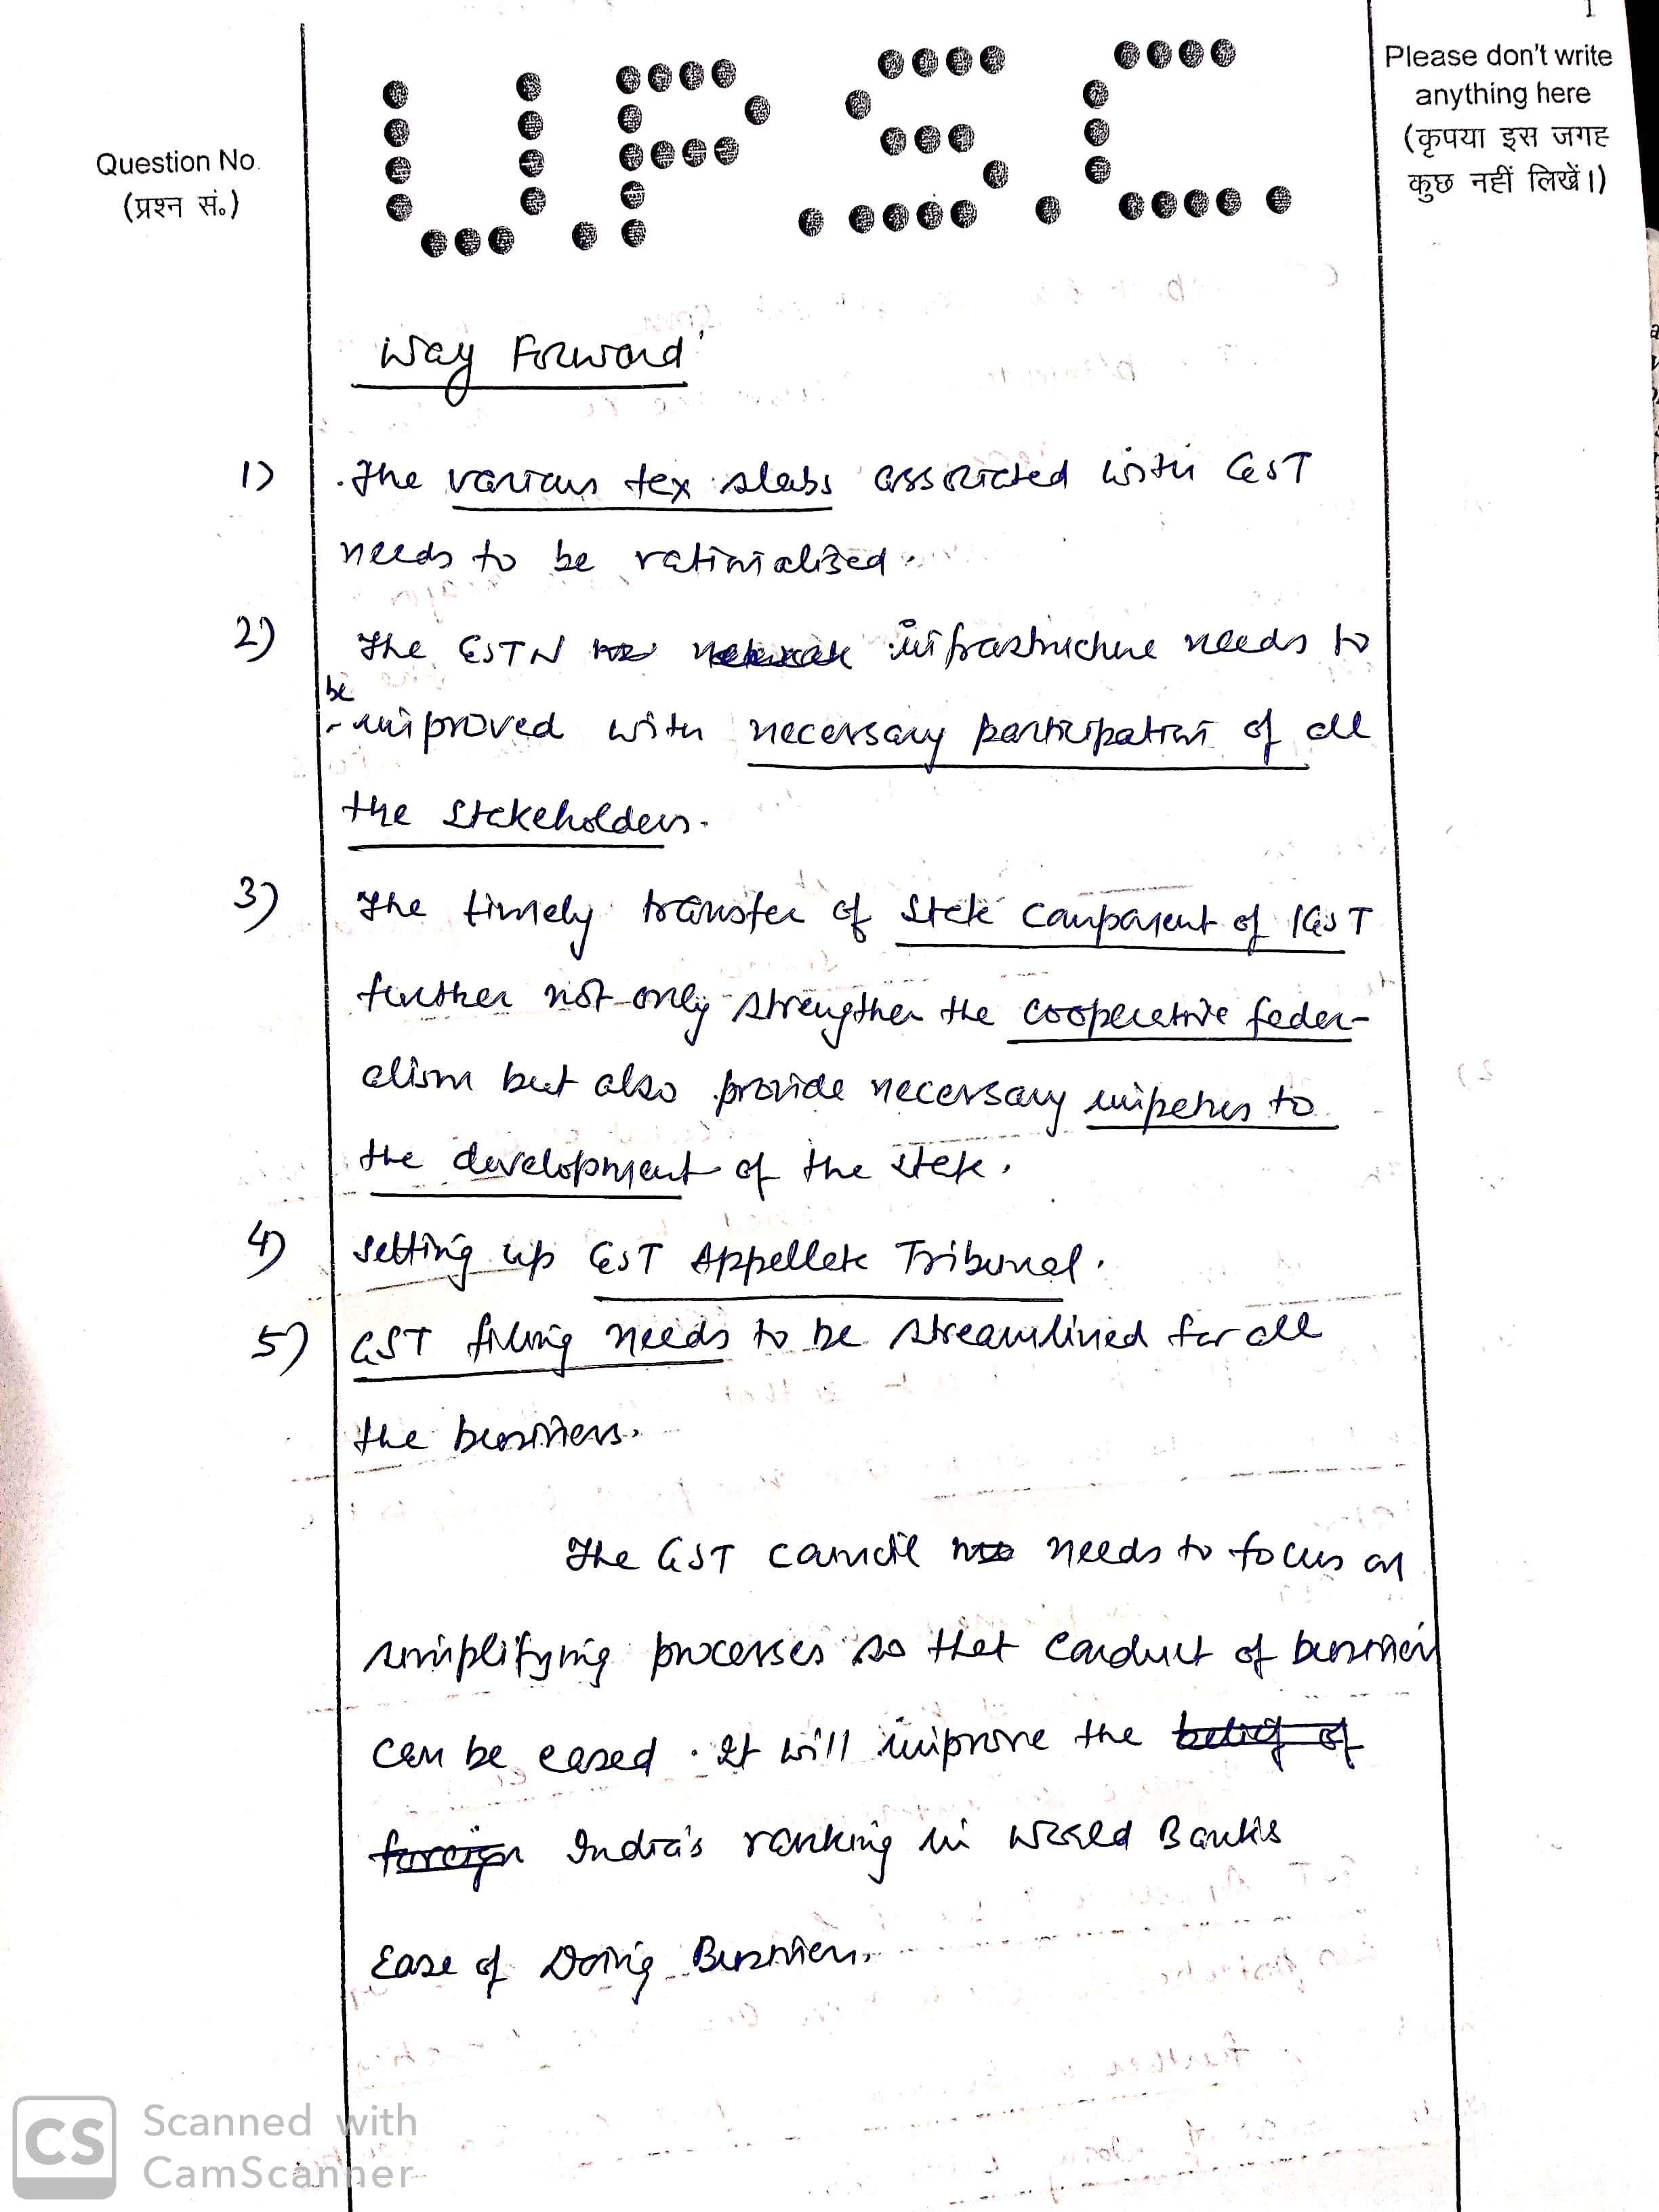 1
Please don't write
anything here
(कृपया इस जगह
कुछ नहीं लिखें।)
Question No.
(प्रश्न सं॰)
U.P.S.C.
Way Forward
1) The various tax slabs associated with GST
needs to be rationalized.
2) The GSTN infrastructure needs to
be
improved with necessary participation of all
the stakeholders.
3) The timely transfer of State component of IGST
further not only strengthen the cooperative feder-
alism but also provide necessary impetus to
the development of the state.
4) Setting up GST Appellate Tribunal.
5) GST filing needs to be streamlined for all
the business.
The GST council needs to focus on
simplifying processes so that conduct of business
can be eased. It will improve the belief of
foreign India's ranking in World Bank's
Ease of Doing Business.
CS Scanned with
CamScanner